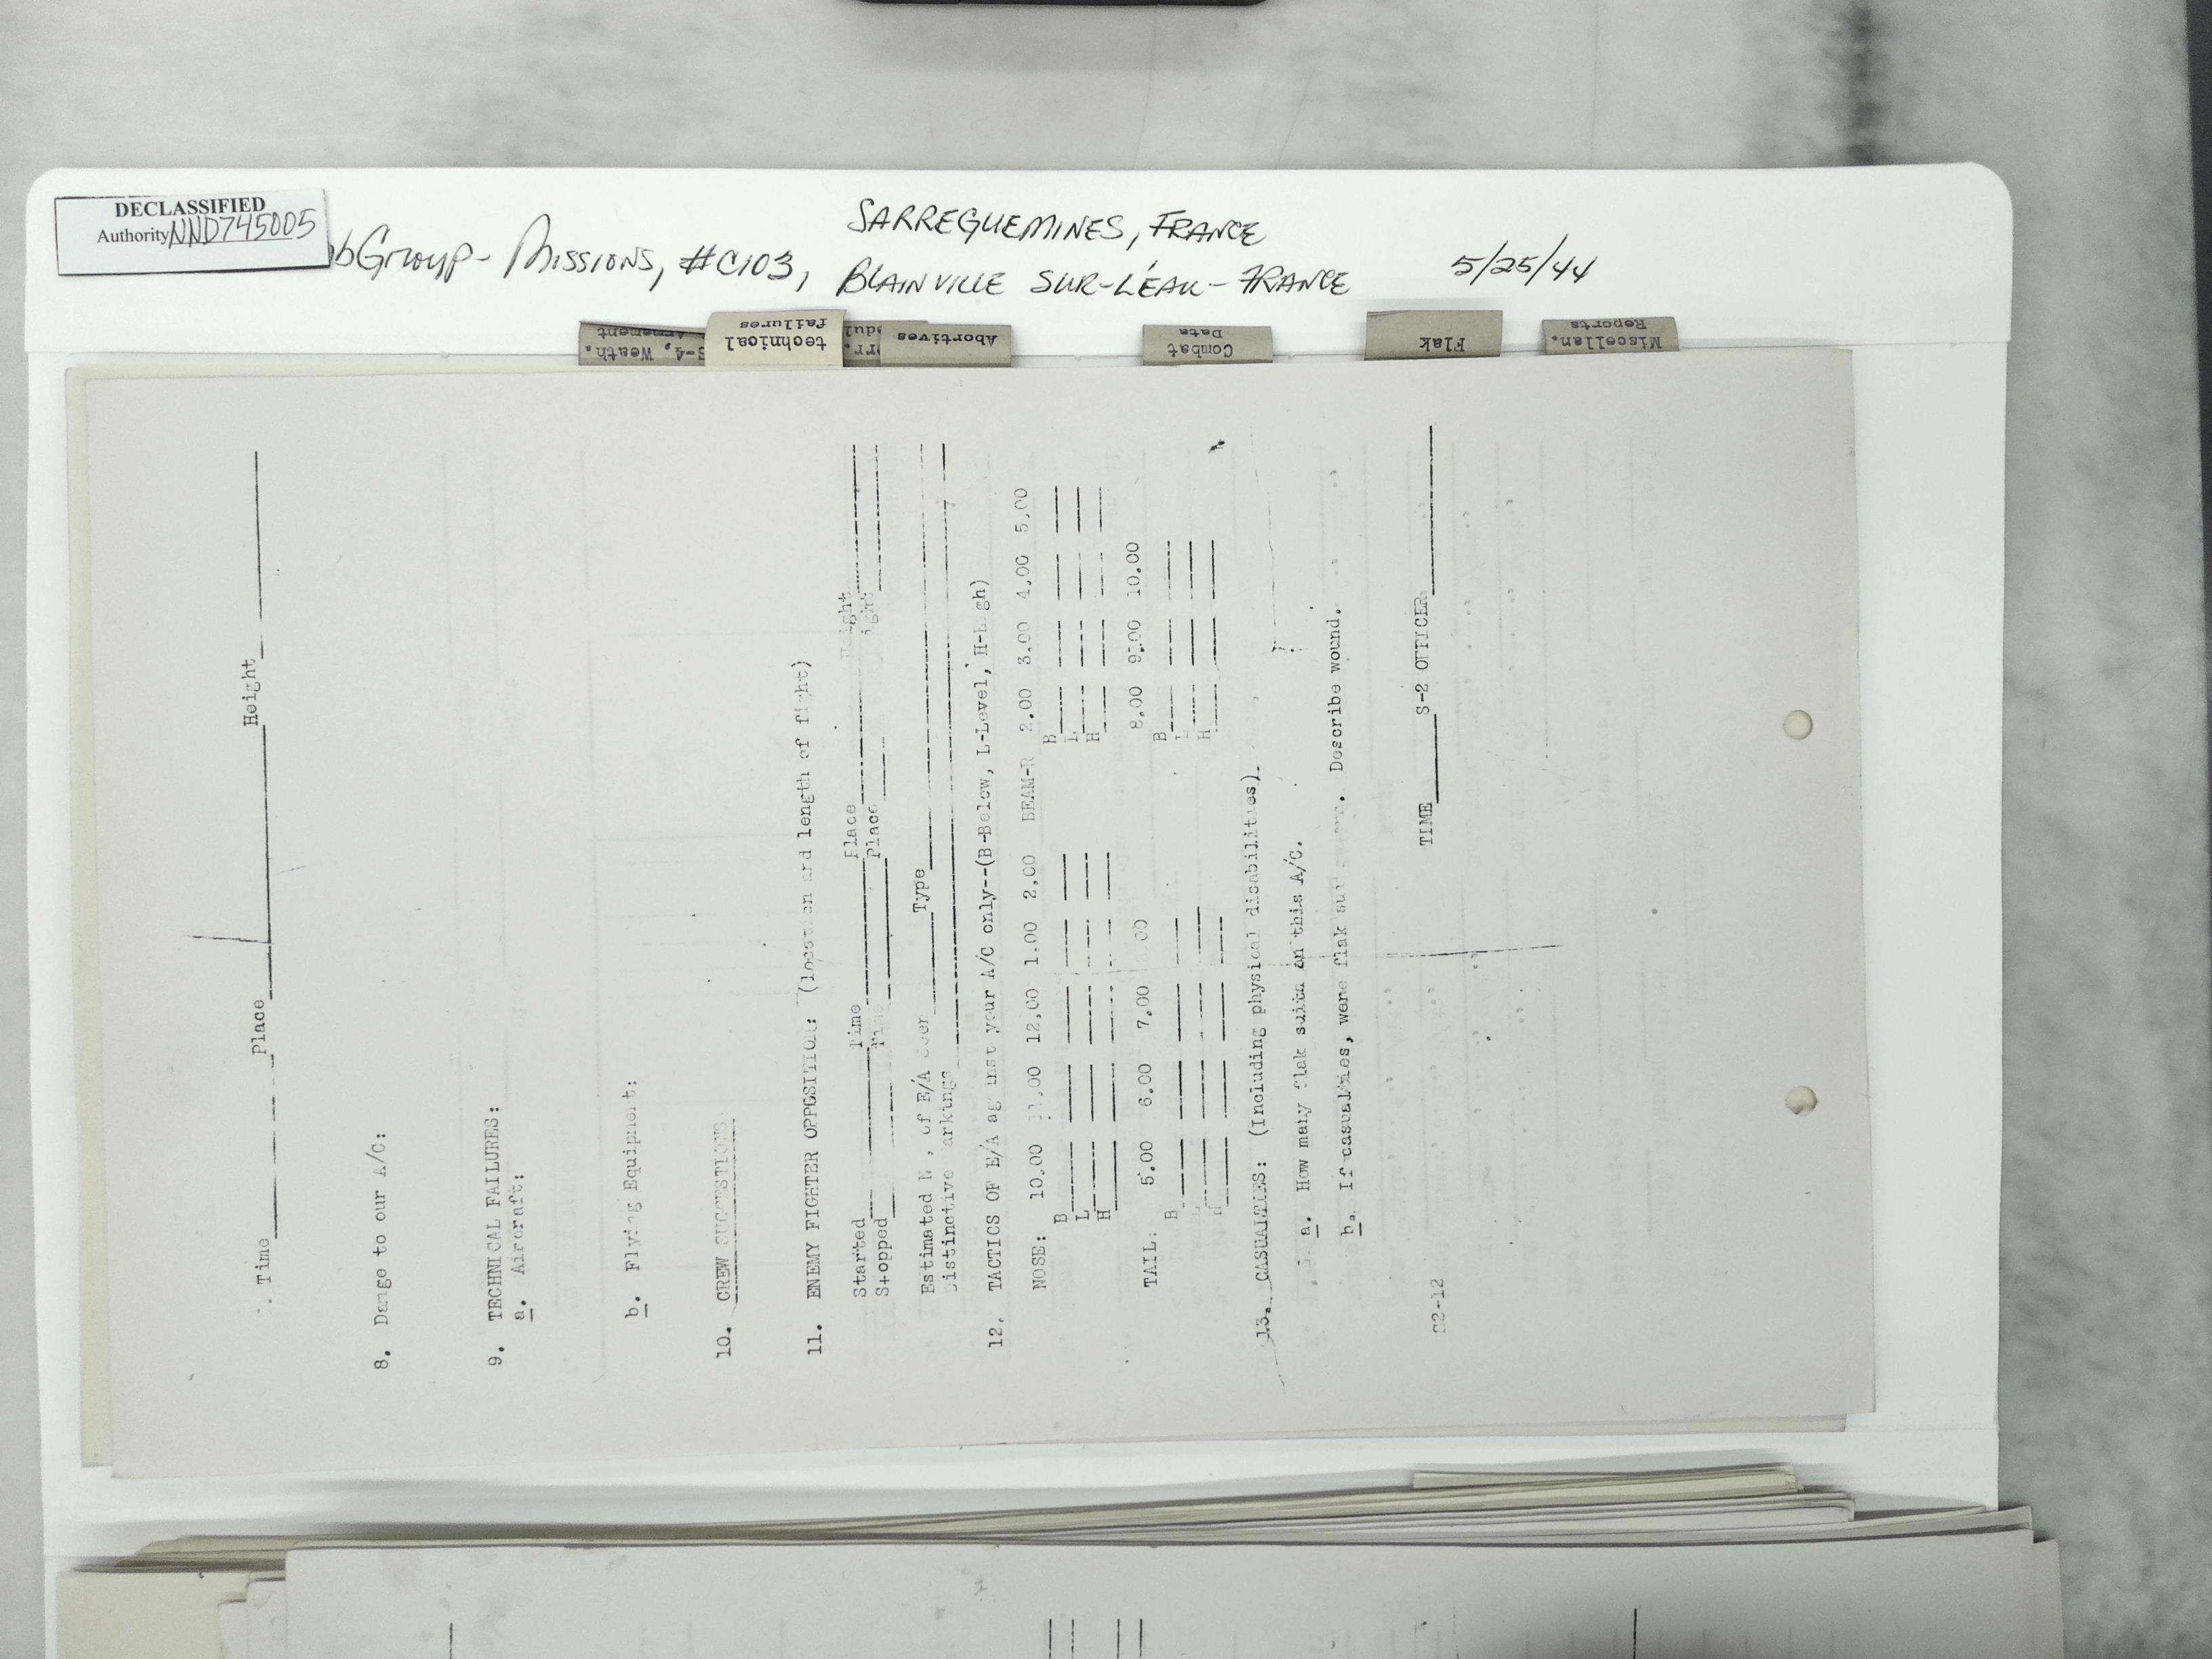 DECLASSIFIED
Authority NND745005
bGroup- Missions, #C103,
SARREGUEMINES, FRANCE
BLAINVILLE SUR-L'EAU- FRANCE
5/25/44
S-4, Weath.
Armement
technical
failures
Abortives
Combat
Data
Flak
Miscellan.
Reports
Time Place Height
8. Damge to our A/C:
9. TECHNICAL FAILURES:
a. Aircraft:
b. Flying Equipment:
10. CREW SUGGESTIONS:
11. ENEMY FIGHTER OPPOSITION: (location and length of fight)
Started Time Place Height
Stopped Time Place
Estimated N , of E/A Type
Distinctive arkings
12. TACTICS OF E/A against your A/C only--(B-Below, L-Level, H-High)
NOSE: 10.00 11.00 12.00 1.00 2.00 BEAM-R 2.00 3.00 4.00 5.00
B B
L L
H H
TAIL: 5.00 6.00 7.00 00 8.00 9.00 10.00
B B
L L
H H
13. CASUALTIES: (Including physical disabilitues).
a. How many flak suits on this A/C.
b. If casualties, were flak suits. Describe wound.
TIME S-2 OFFICER
S2-12